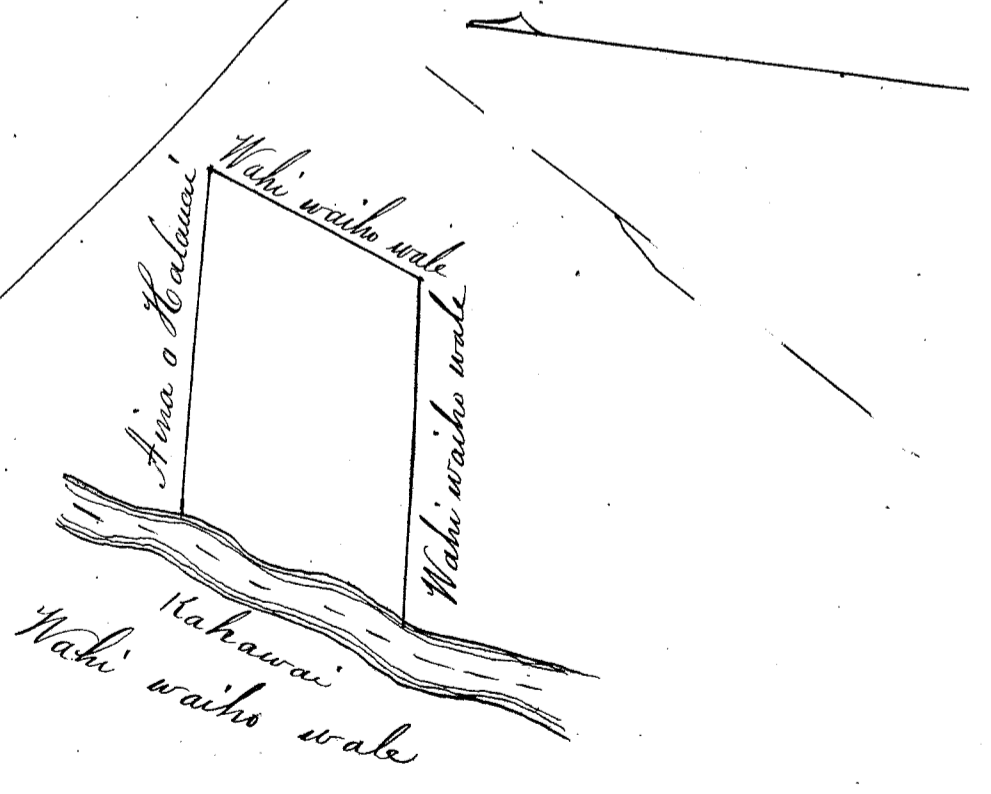 Wahi waiho wale
Aina o Halauai
Wahi waiho wale
Kahawai
Wahi waiho wale